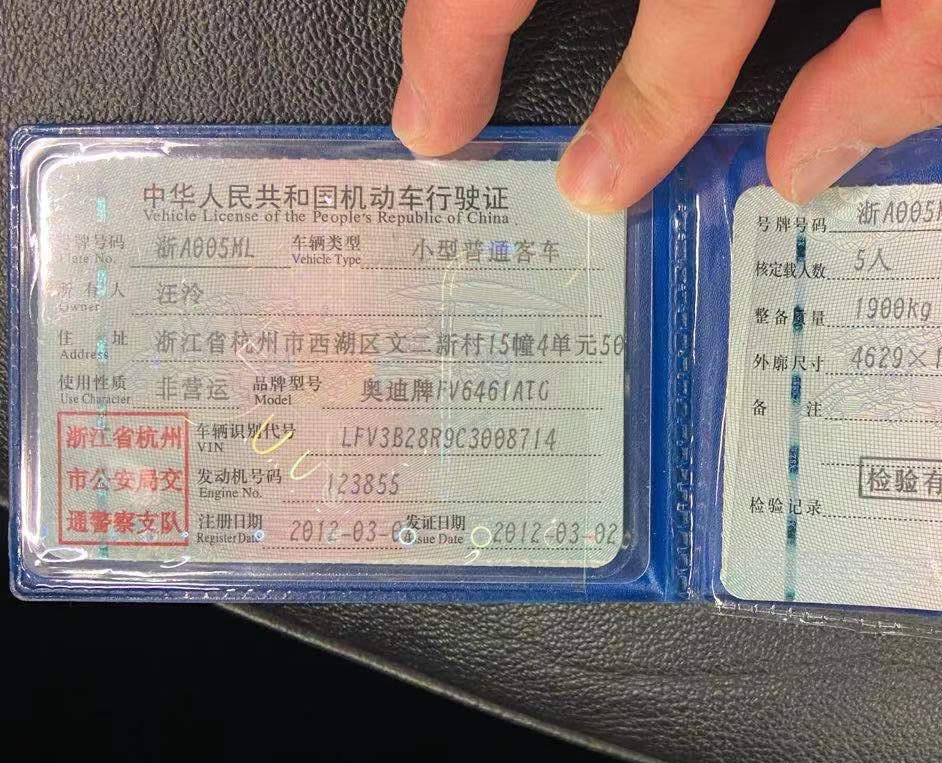 中华人民共和国机动车行驶证
Vehicle License of the People's Republic of China
号牌号码 浙A005ML 车辆类型 小型普通客车
Plate No. Vehicle Type
所有人 汪泠
Owner
住址 浙江省杭州市西湖区文二新村15幢4单元50
Address
使用性质 非营运 品牌型号 奥迪牌FV6461ATG
Use Character Model
浙江省杭州
市公安局交
通警察支队
车辆识别代号 LFV3B28R9C3008714
VIN
发动机号码 123855
Engine No.
注册日期 2012-03-0 发证日期 2012-03-02
Register Date Issue Date
号牌号码 浙A005
核定载人数 5人
整备质量 1900kg
外廓尺寸 4629×1
备注
检验有
检验记录